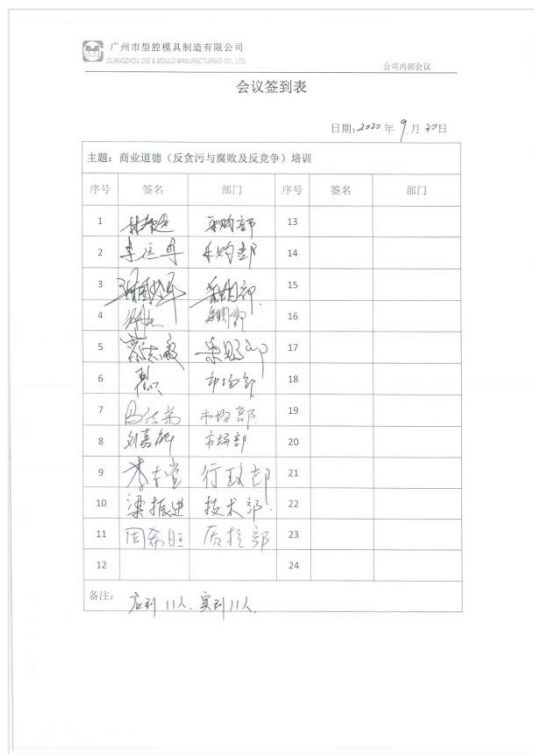 广州市型腔模具制造有限公司
GUANGZHOU DIE & MOULD MANUFACTURING CO., LTD
公司内部会议
会议签到表
日期:2020年 9月30日
主题:商业道德(反贪污与腐败及反竞争)培训
序号 签名 部门 序号 签名 部门
1 采购部 13
2 采购部 14
3 采购部 15
4 采购部 16
5 采购部 17
6 市场部 18
7 市场部 19
8 刘嘉 市场部 20
9 行政部 21
10 梁振进 技术部 22
11 周希旺 质控部 23
12 24
备注: 应到11人. 实到11人.